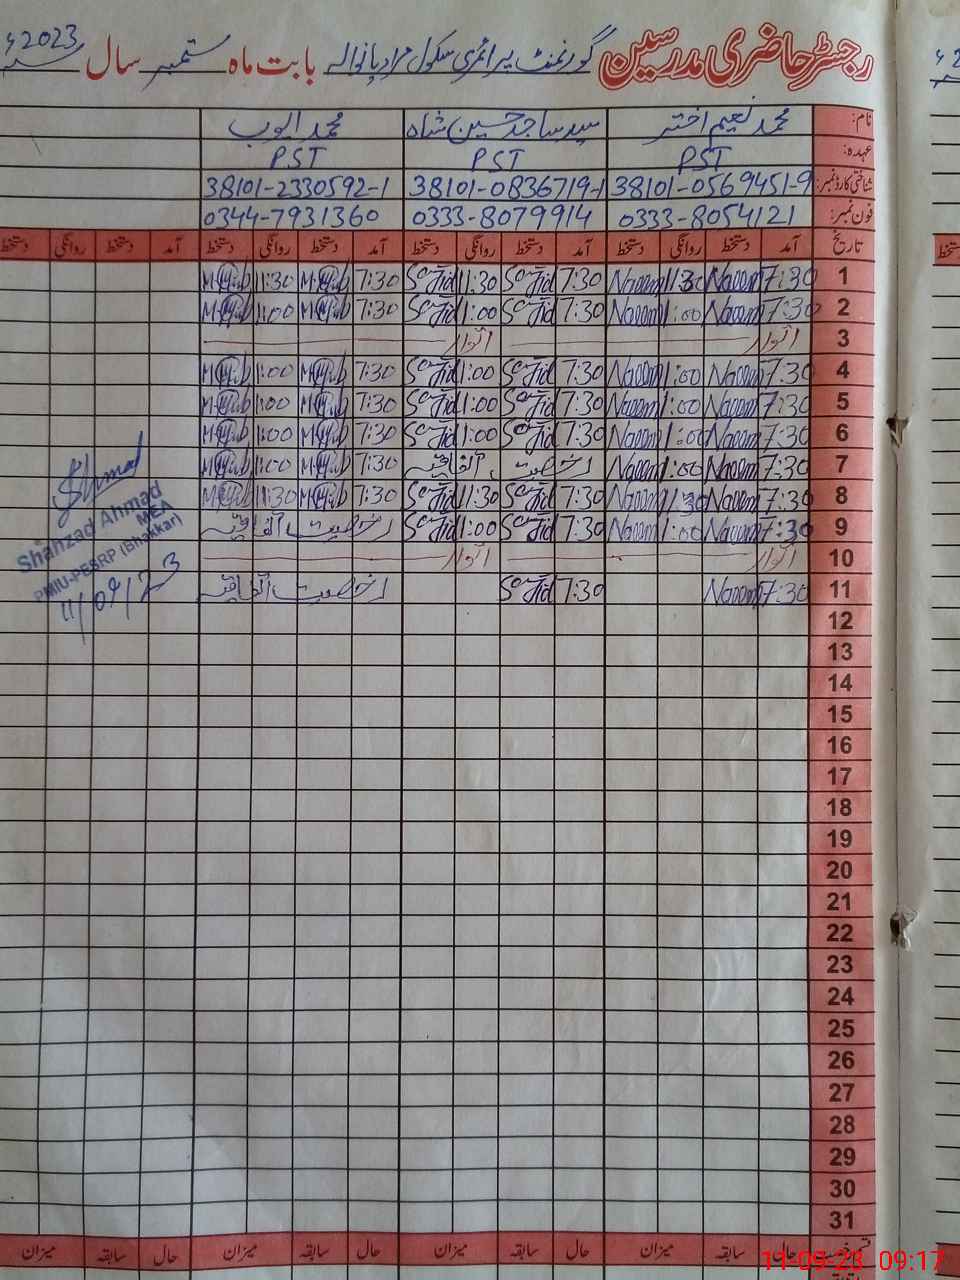 رجسٹر حاضری مدرسین گورنمنٹ پرائمری سکول مراد پانوالہ بابت ماہ ستمبر سال 2023ء
نام: محمد نعیم اختر سید ساجد حسین شاہ محمد ایوب
عہدہ: PST PST PST
شناختی کارڈ نمبر: 38101-0569451-9 38101-0836719-1 38101-2330592-1
فون نمبر: 0333-8054121 0333-8079914 0344-7931360
تاریخ آمد دستخط روانگی دستخط آمد دستخط روانگی دستخط آمد دستخط روانگی دستخط آمد دستخط روانگی دستخط
1 7:30 Naeem 11:30 Naeem 7:30 Sajid 11:30 Sajid 7:30 11:30
2 7:30 Naeem 1:00 Naeem 7:30 Sajid 1:00 Sajid 7:30 1:00
3 اتوار اتوار
4 7:30 Naeem 1:00 Naeem 7:30 Sajid 1:00 Sajid 7:30 1:00
5 7:30 Naeem 1:00 Naeem 7:30 Sajid 1:00 Sajid 7:30 1:00
6 7:30 Naeem 1:00 Naeem 7:30 Sajid 1:00 Sajid 7:30 1:00
7 7:30 Naeem 1:00 Naeem رخصت اتفاقیہ 7:30 1:00
8 7:30 Naeem 11:30 Naeem 7:30 Sajid 11:30 Sajid 7:30 11:30
9 7:30 Naeem 1:00 Naeem 7:30 Sajid 1:00 Sajid رخصت اتفاقیہ
10 اتوار اتوار
11 7:30 Naeem 7:30 Sajid رخصت اتفاقیہ
12
13
14
15
16
17
18
19
20
21
22
23
24
25
26
27
28
29
30
31
حال سابقہ میزان حال سابقہ میزان حال سابقہ میزان حال سابقہ میزان
SAhmad
Shahzad Ahmad
MEA
PMIU-PESRP (Bhakkar)
11/09/23
11-09-23 09:17